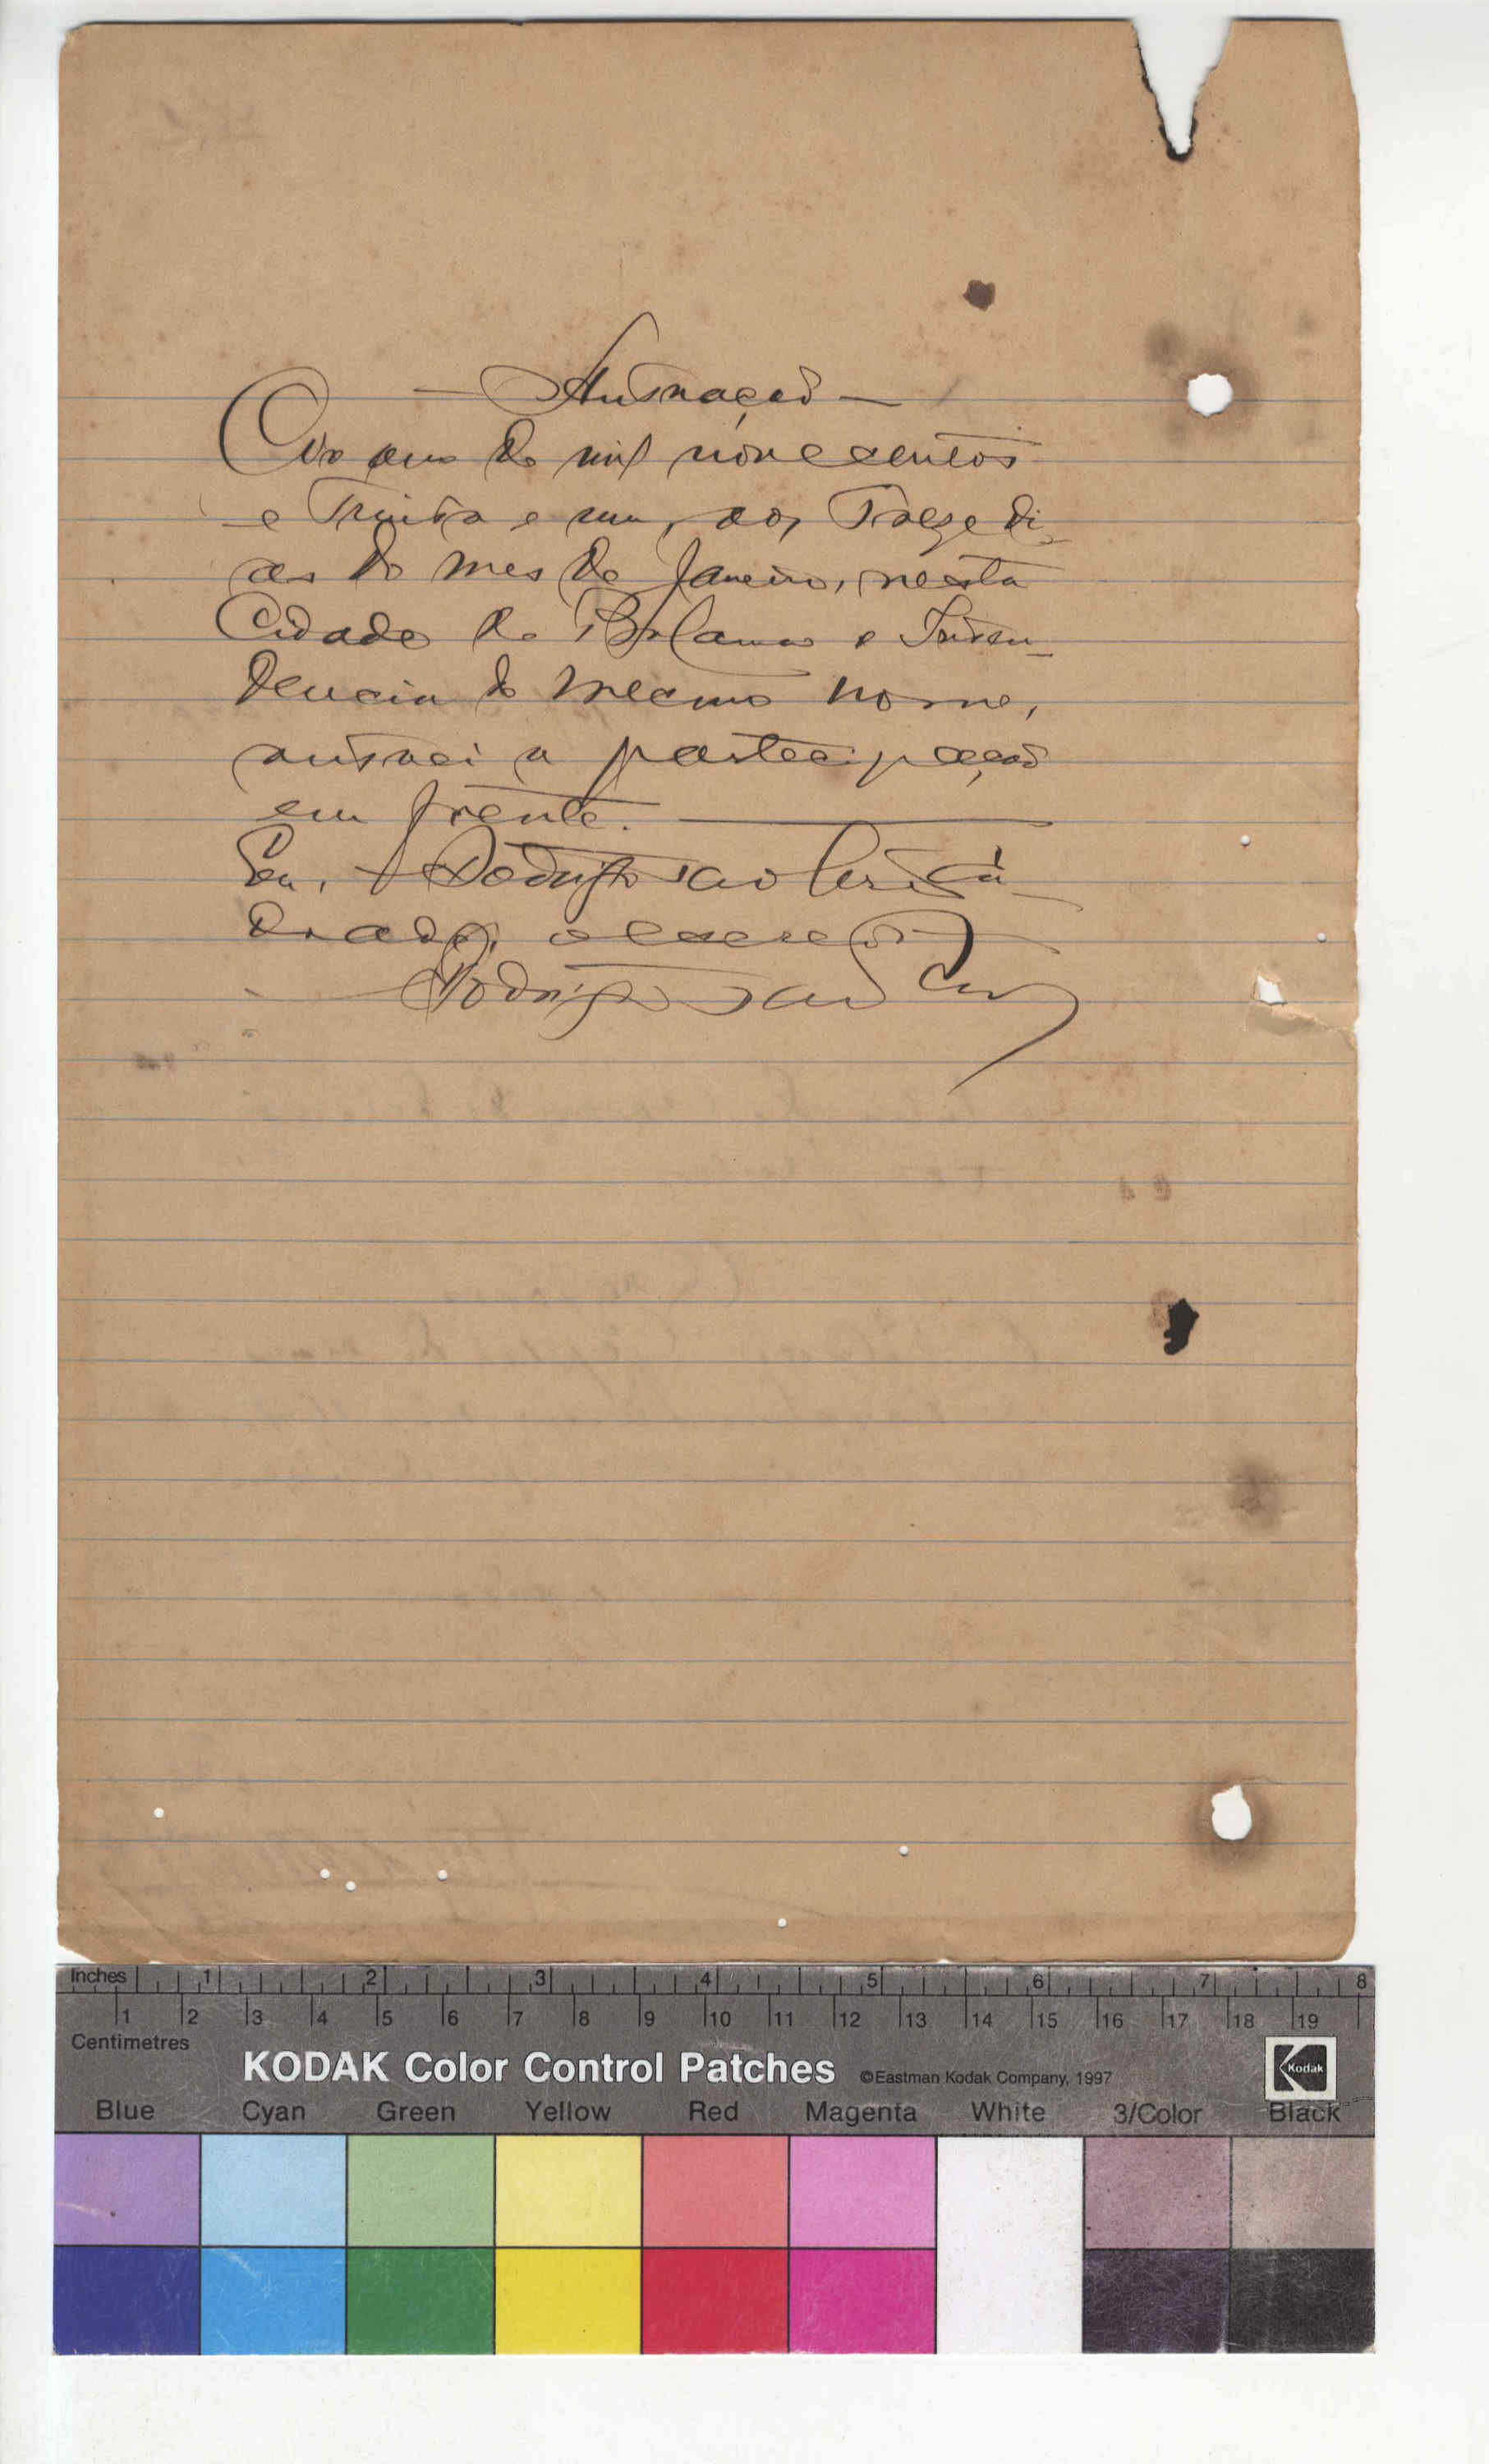 — Autuação —
No ano de mil novecentos
e trinta e um, aos treze di-
as do mes de Janeiro, nesta
Cidade de Bolama e Inten-
dencia do mesmo nome,
autuei a partecipação
em frente.
Eu, Rodrigo
o escrevi
Rodrigo
Inches 1 2 3 4 5 6 7 8
1 2 3 4 5 6 7 8 9 10 11 12 13 14 15 16 17 18 19
Centimetres
KODAK Color Control Patches ©Eastman Kodak Company, 1997 Kodak
Blue Cyan Green Yellow Red Magenta White 3/Color Black